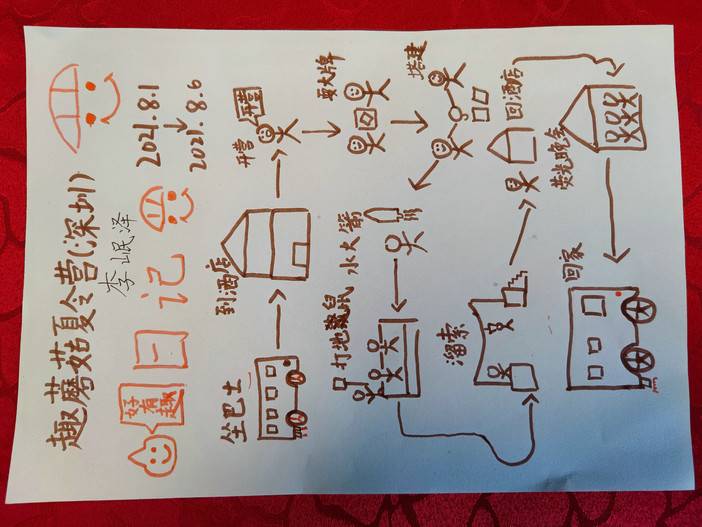 趣蘑菇夏令营(深圳)
李岷泽
好有趣
日记
2021.8.1
2021.8.6
坐巴士
到酒店
开营
开营
耍大牌
搭建
水火箭
打地鼹鼠
溜索
回酒店
荧光晚会
回家